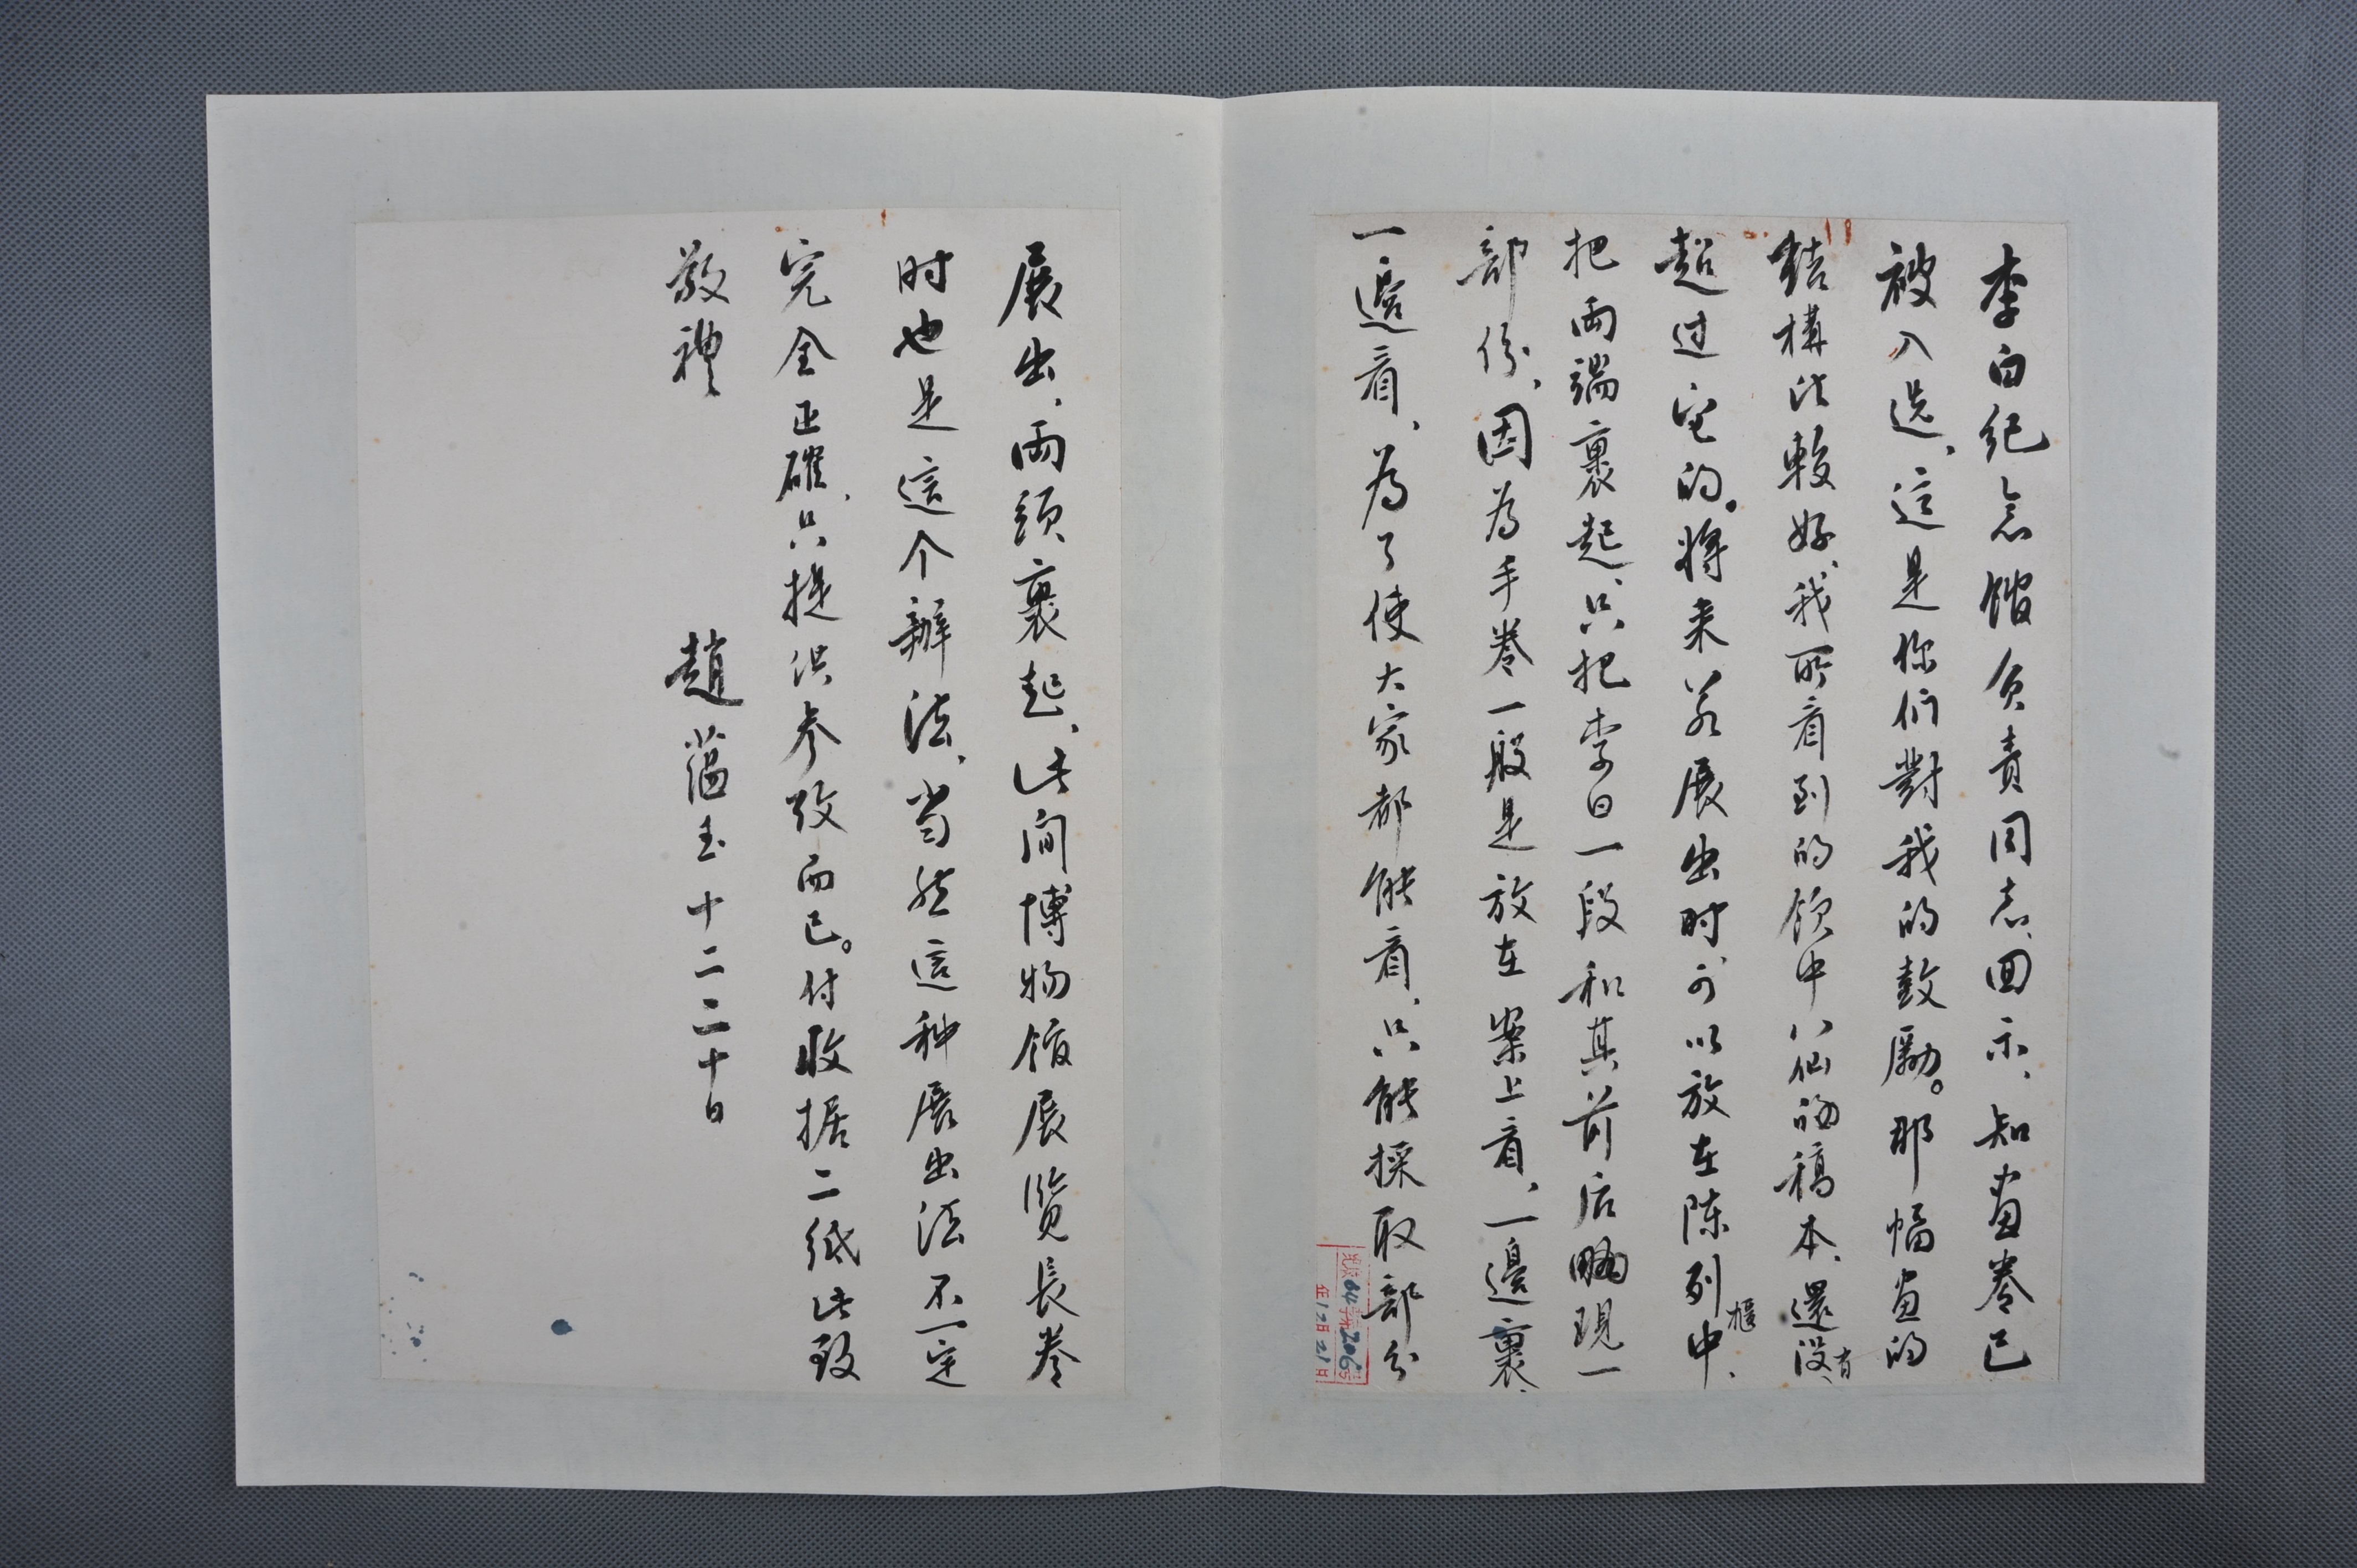 李白纪念馆负责同志、回示、知畫卷已
被入选、這是你们對我的鼓勵。那幅畫的
结構比較好、我所看到的饮中八仙的稿本、還没有
超过它的。将来若展出时、可以放在陈列櫃中、
把両端裹起、只把李白一段和其前后畧現一
部份、因為手卷一般是放在案上看、一邊裹、
一邊看、為了使大家都能看、只能採取部分
展出、両頭裹起、此间博物馆展览長卷
时也是這个辦法、当然這种展出法不一定
完全正確、只提供参攷而已。付收据二纸此致
敬禮
趙蕴玉十二二十日
206
12月21日